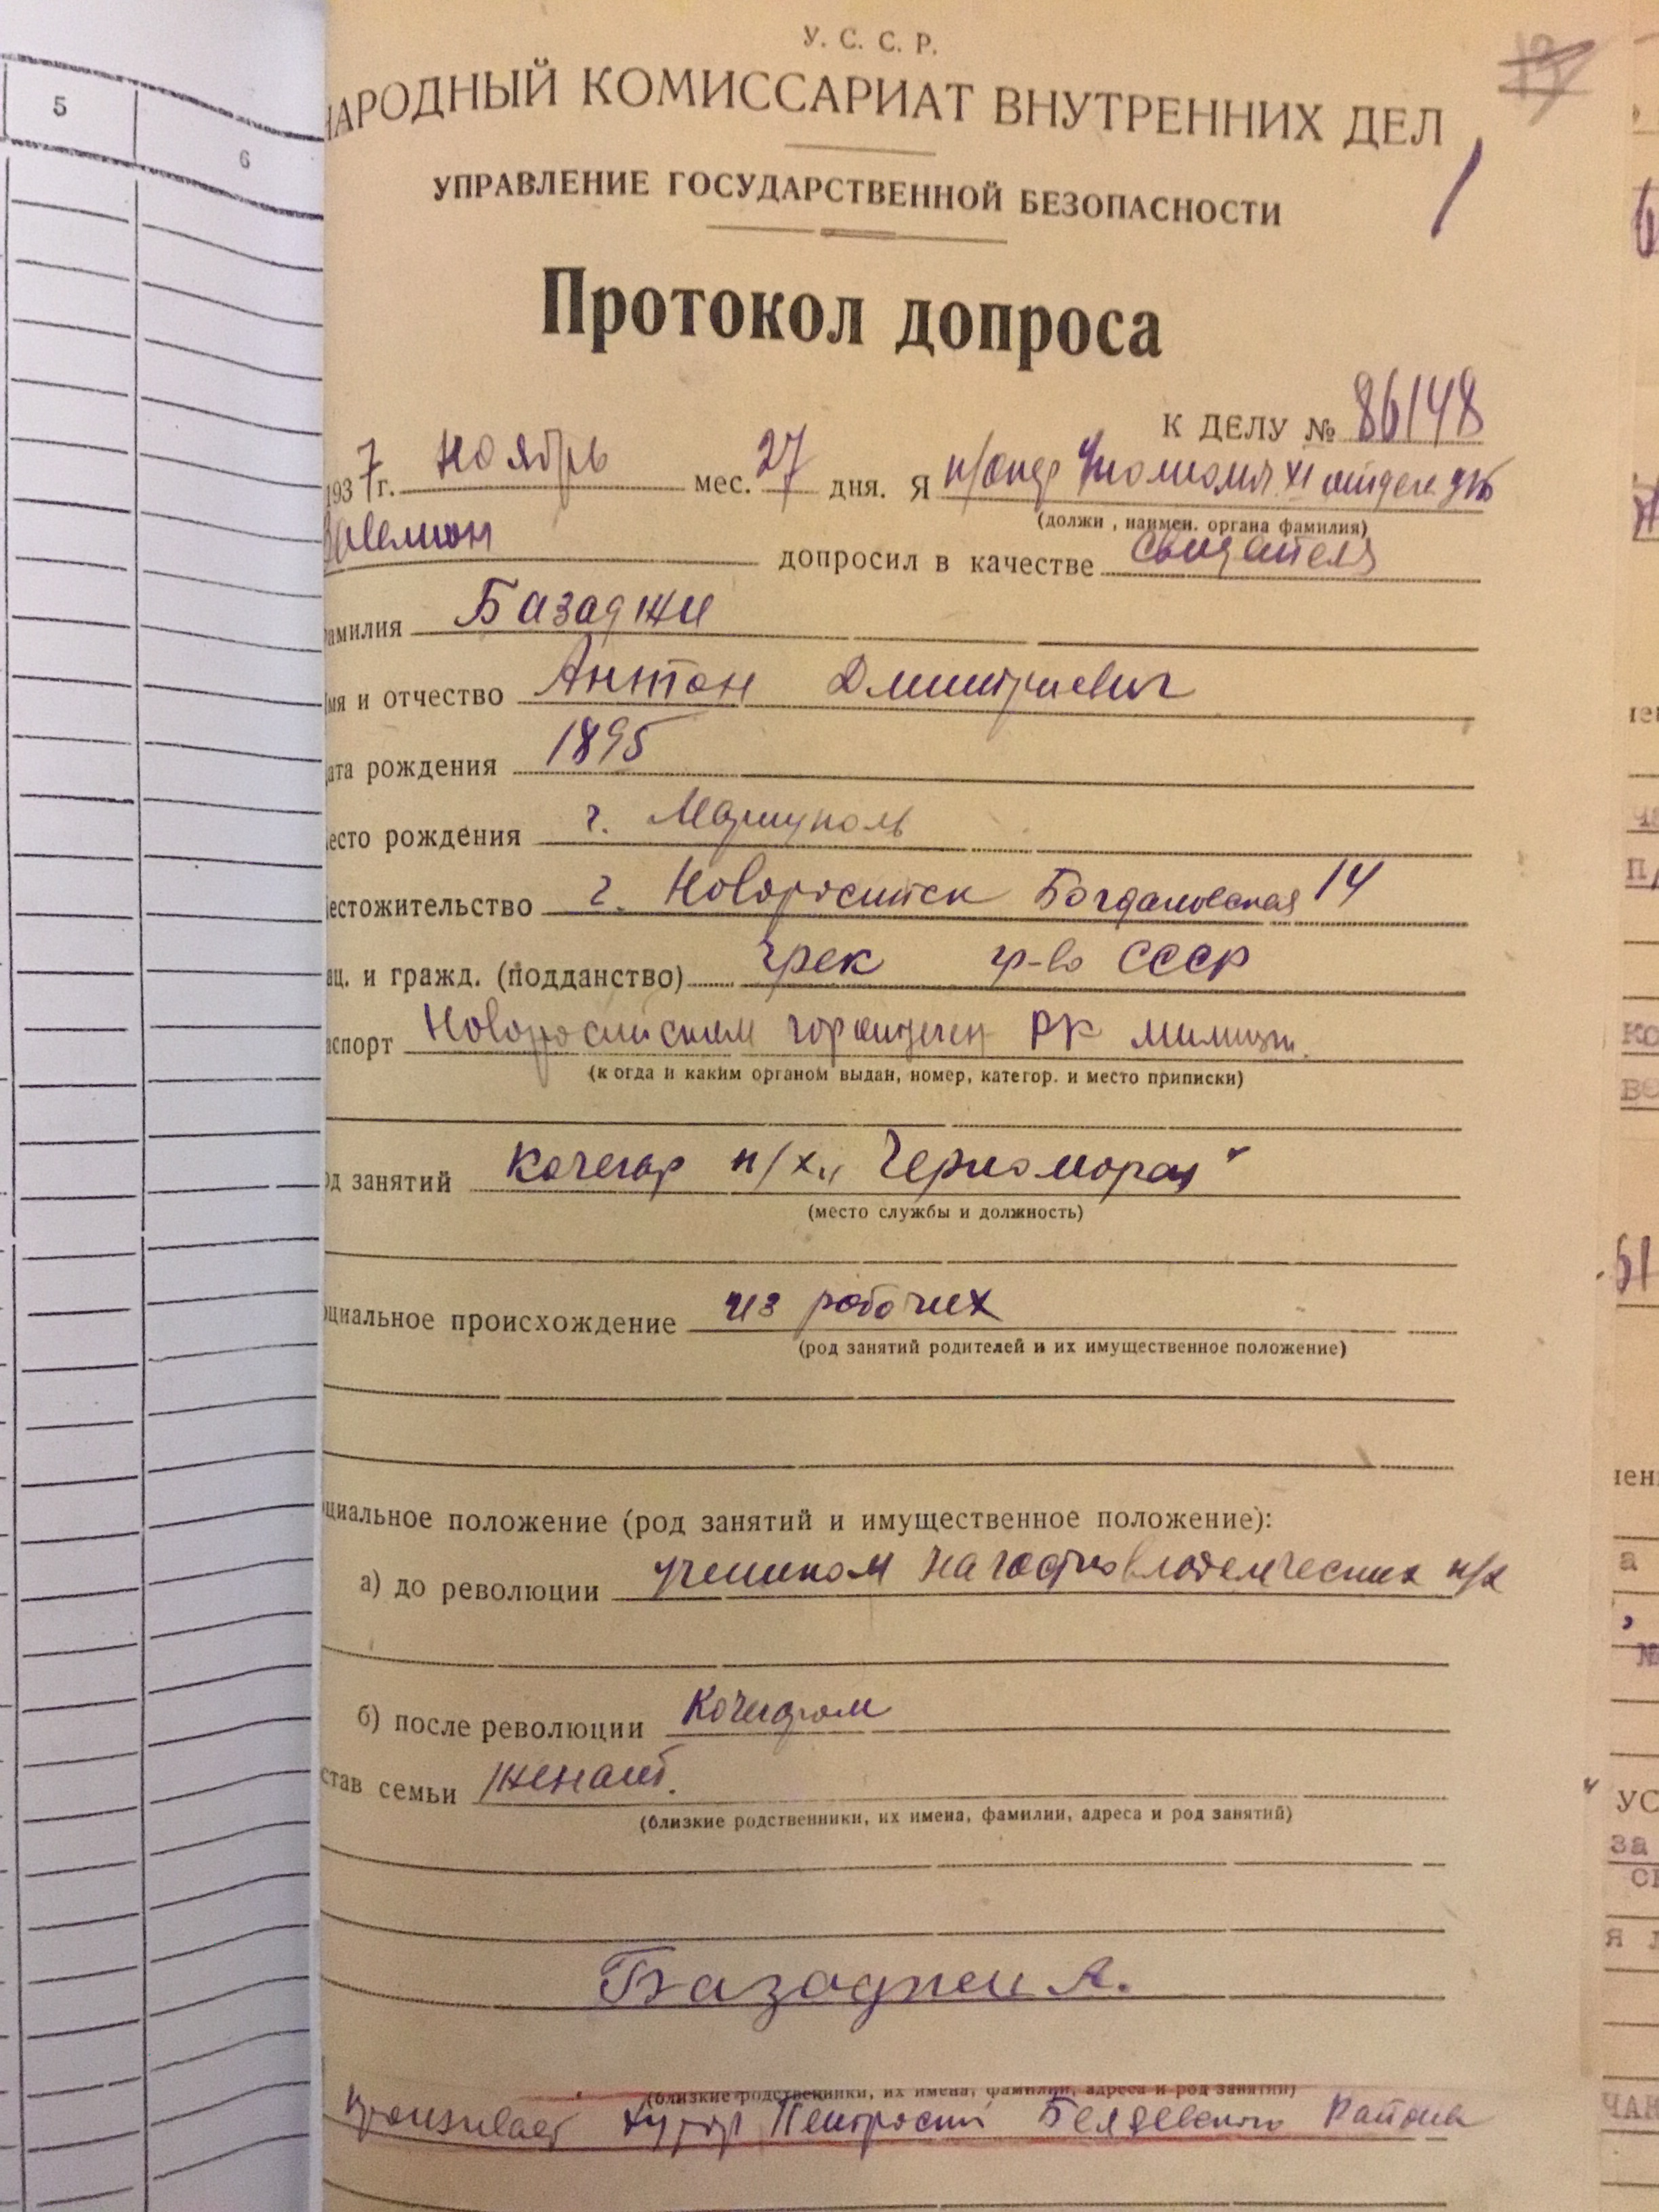 5
6
У. С. С. Р.
НАРОДНЫЙ КОМИССАРИАТ ВНУТРЕННИХ ДЕЛ
УПРАВЛЕНИЕ ГОСУДАРСТВЕННОЙ БЕЗОПАСНОСТИ
Протокол допроса
К ДЕЛУ № 86148
1937 г. ноябрь мес. 27 дня. Я XI
(должн , наимен. органа фамилия)
допросил в качестве свидетеля
амилия Базаджи
мя и отчество Антон Дмитриевич
ата рождения 1895
есто рождения г. Мариуполь
естожительство г. Новоросийск Богдановская 14
ац. и гражд. (подданство) грек гр-во СССР
аспорт Новоросийским РК милиции.
(когда и каким органом выдан, номер, категор. и место приписки)
од занятий кочегар п/х „Черноморец"
(место службы и должность)
оциальное происхождение из рабочих
(род занятий родителей и их имущественное положение)
оциальное положение (род занятий и имущественное положение):
а) до революции учеником на частновладельческих п/х
б) после революции Кочегаром
став семьи женат.
(близкие родственники, их имена, фамилии, адреса и род занятий)
Базаджи А.
(близкие родственники, их имена, фамилии, адреса и род занятий)
проживает хутор района